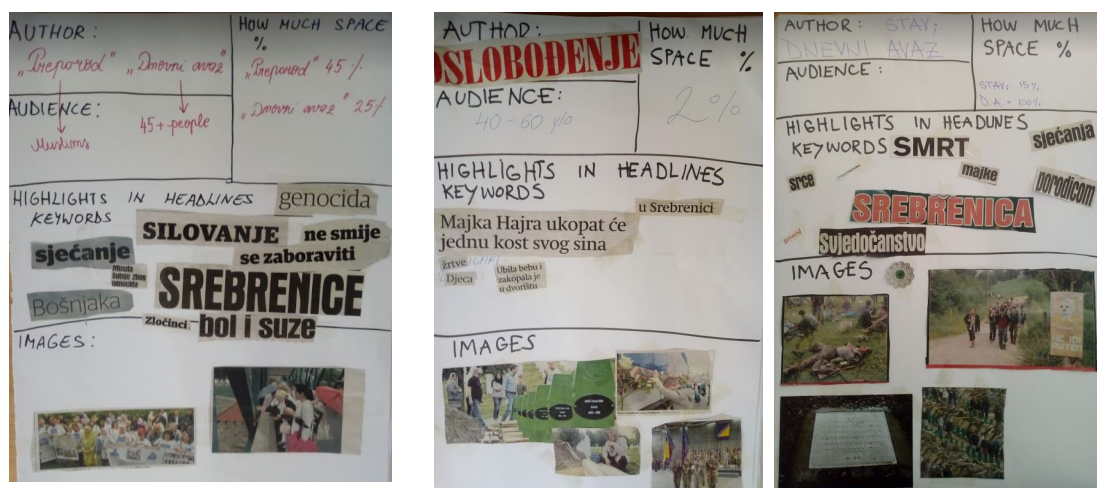 AUTHOR:
„Preporod“ „Dnevni avaz“
HOW MUCH SPACE
%
„Preporod“ 45 %
„Dnevni avaz“ 25%
AUDIENCE:
Muslims
45+ people
HIGHLIGHTS IN HEADLINES
KEYWORDS
genocida
sjećanje
SILOVANJE
ne smije
se zaboraviti
Minuta
šutnje zbog
genocida
SREBRENICE
Bošnjaka
Zločinci
bol i suze
IMAGES:
AUTHOR:
OSLOBOĐENJE
HOW MUCH
SPACE %
2%
AUDIENCE:
40-60 y/o
HIGHLIGHTS IN HEADLINES
KEYWORDS
u Srebrenici
Majka Hajra ukopat će
jednu kost svog sina
žrtve
Djeca
Ubila bebu i
zakopala je
u dvorištu
IMAGES
AUTHOR: STAV;
DNEVNI AVAZ
HOW MUCH
SPACE %
STAV: 15%
D.A.= 100%
AUDIENCE:
HIGHLIGHTS IN HEADLINES
KEYWORDS SMRT
sjećanja
srce
majke
porodicom
SREBRENICA
Svjedočanstvo
IMAGES